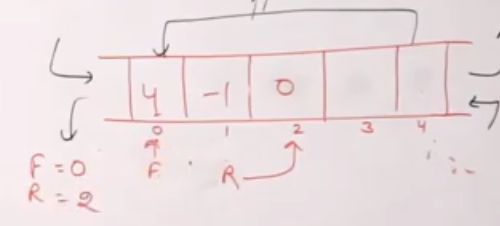 4 -1 0
0 1 2 3 4
F
R
F = 0
R = 2